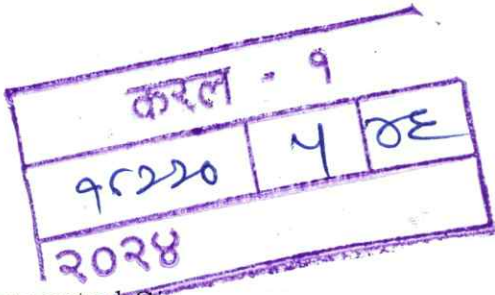 करल - १
१८२२० ५ ४६
२०२४